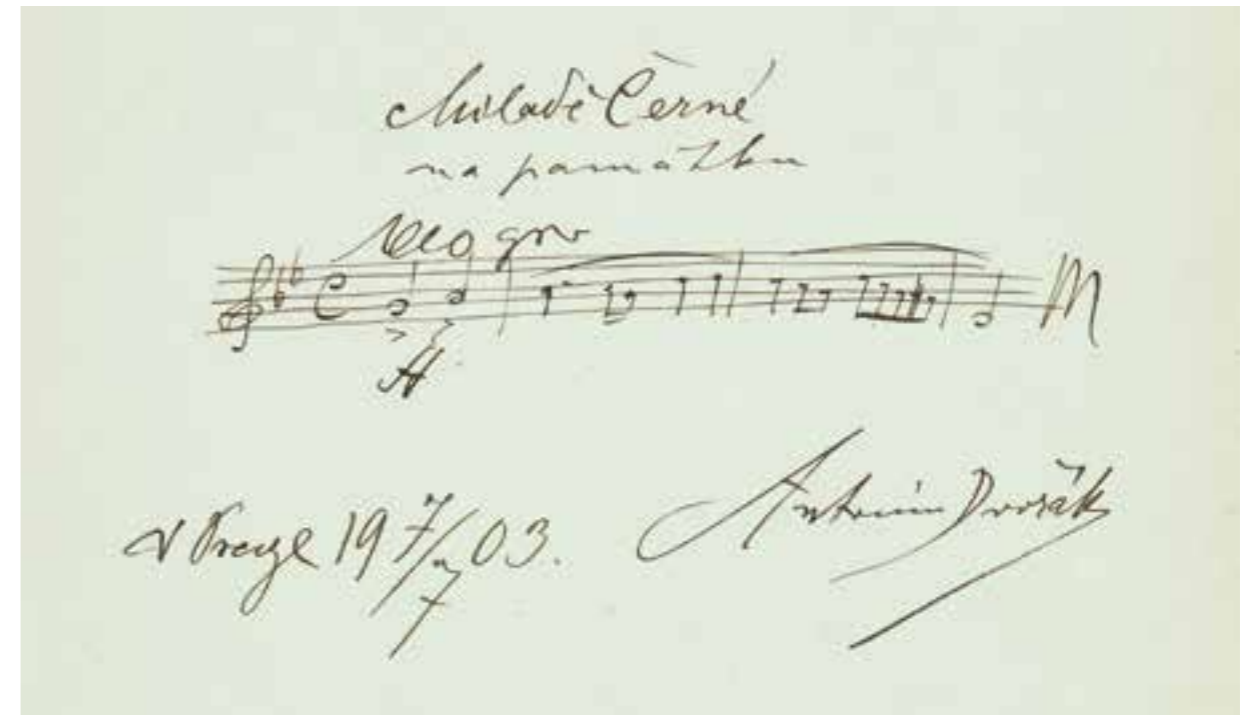 Miladě Černé
na památku
Allegro
ff
V Praze 19 7/7 03.
Antonín Dvořák